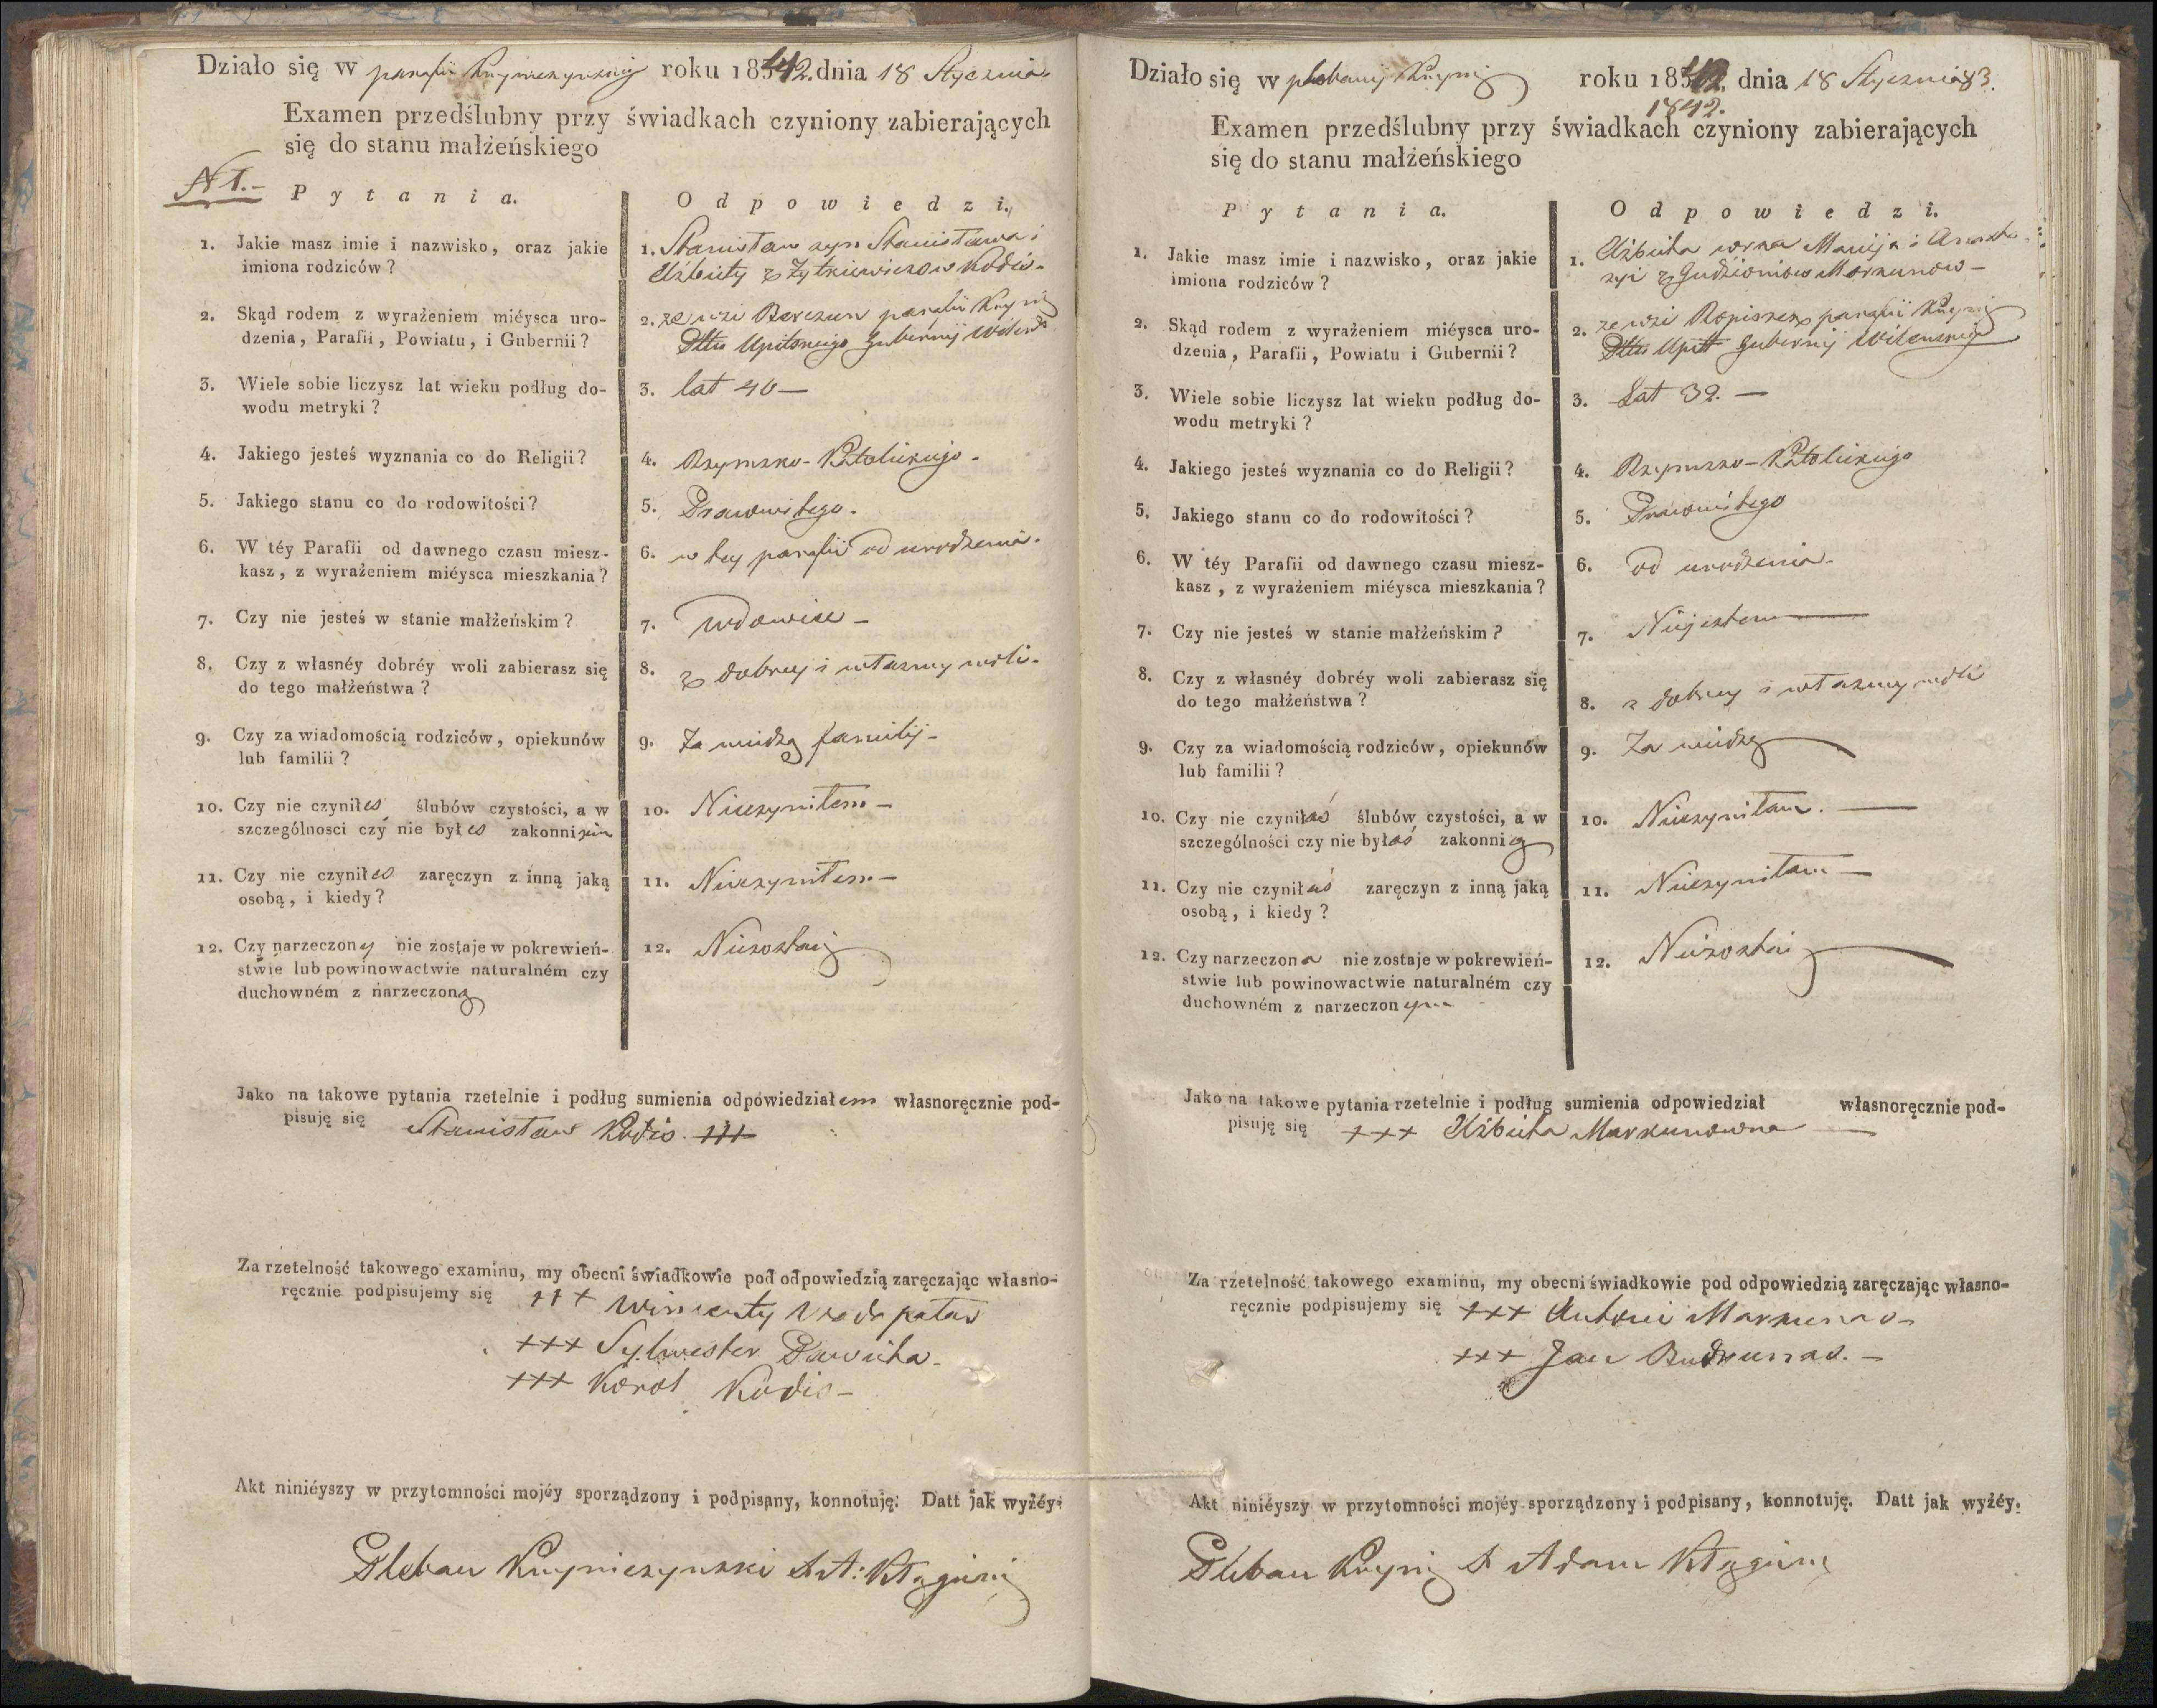 Działo się w parafii Krynieczynskiey roku 1842. dnia 18 Stycznia
Examen przedślubny przy świadkach czyniony zabierających
się do stanu małżeńskiego
N 1.-
Pytania.
Odpowiedzi.
1. Jakie masz imie i nazwisko, oraz jakie
imiona rodziców?
1. Stanisław syn Stanisława i
Elżbiety z Kodis-
2. Skąd rodem z wyrażeniem miéysca uro-
dzenia, Parafii, Powiatu, i Gubernii?
2. ze wsi parafii
Pttu Upitskiego Gubernij
3. Wiele sobie liczysz lat wieku podług do-
wodu metryki?
3. lat 40-
4. Jakiego jesteś wyznania co do Religii?
4. Rzymsko-Katolickiego.
5. Jakiego stanu co do rodowitości?
5. Prawowitego.
6. W téy Parafii od dawnego czasu miesz-
kasz, z wyrażeniem miéysca mieszkania?
6. w tey parafii od urodzenia.
7. Czy nie jesteś w stanie małżeńskim?
7. Wdowiec-
8. Czy z własnéy dobréy woli zabierasz się
do tego małżeństwa?
8. z dobrey i własney woli.
9. Czy za wiadomością rodziców, opiekunów
lub familii?
9. Za wiedzą familij-
10. Czy nie czyniłeś ślubów czystości, a w
szczególnosci czy nie byłeś zakonnikiem
10. Nieczyniłem-
11. Czy nie czyniłeś zaręczyn z inną jaką
osobą, i kiedy?
11. Nieczyniłem-
12. Czy narzeczony nie zostaje w pokrewień-
stwie lub powinowactwie naturalném czy
duchowném z narzeczoną
12. Niezostaię
Jako na takowe pytania rzetelnie i podług sumienia odpowiedziałem własnoręcznie pod-
pisuję się Stanisław Kodis. +++
Za rzetelność takowego examinu, my obecni świadkowie pod odpowiedzią zaręczając własno-
ręcznie podpisujemy się +++ Wincenty
+++ Sylwester
+++ Karol Kodis-
Akt niniéyszy w przytomności mojéy sporządzony i podpisany, konnotuję. Datt jak wyżéy.
Pleban
Działo się w plebanij roku 1842. dnia 18 Stycznia 83.
1842.
Examen przedślubny przy świadkach czyniony zabierających
się do stanu małżeńskiego
Pytania.
Odpowiedzi.
1. Jakie masz imie i nazwisko, oraz jakie
imiona rodziców?
1. Elżbieta corka Macieja i
z
2. Skąd rodem z wyrażeniem miéysca uro-
dzenia, Parafii, Powiatu i Gubernii?
2. ze wsi parafii
Pttu Upit Gubernij Wilenskiey
3. Wiele sobie liczysz lat wieku podług do-
wodu metryki?
3. Lat 32.-
4. Jakiego jesteś wyznania co do Religii?
4. Rzymsko-Katolickiego
5. Jakiego stanu co do rodowitości?
5. Prawowitego
6. W téy Parafii od dawnego czasu miesz-
kasz, z wyrażeniem miéysca mieszkania?
6. od urodzenia-
7. Czy nie jesteś w stanie małżeńskim?
7. Niejestem
8. Czy z własnéy dobréy woli zabierasz się
do tego małżeństwa?
8. z dobrey i własney woli
9. Czy za wiadomością rodziców, opiekunów
lub familii?
9. Za wiedzą
10. Czy nie czyniłaś ślubów czystości, a w
szczególności czy nie byłaś zakonnicą
10. Nieczyniłam.-
11. Czy nie czyniłaś zaręczyn z inną jaką
osobą, i kiedy?
11. Nieczyniłam-
12. Czy narzeczona nie zostaje w pokrewień-
stwie lub powinowactwie naturalném czy
duchowném z narzeczonym
12. Niezostaię
Jako na takowe pytania rzetelnie i podług sumienia odpowiedział własnoręcznie pod-
pisuję się +++ Elżbieta Markunowna
Za rzetelność takowego examinu, my obecni świadkowie pod odpowiedzią zaręczając własno-
ręcznie podpisujemy się +++ Antoni Markunas-
+++ Jan Budrunas.-
Akt niniéyszy w przytomności mojéy sporządzony i podpisany, konnotuję. Datt jak wyżéy.
Pleban X Adam